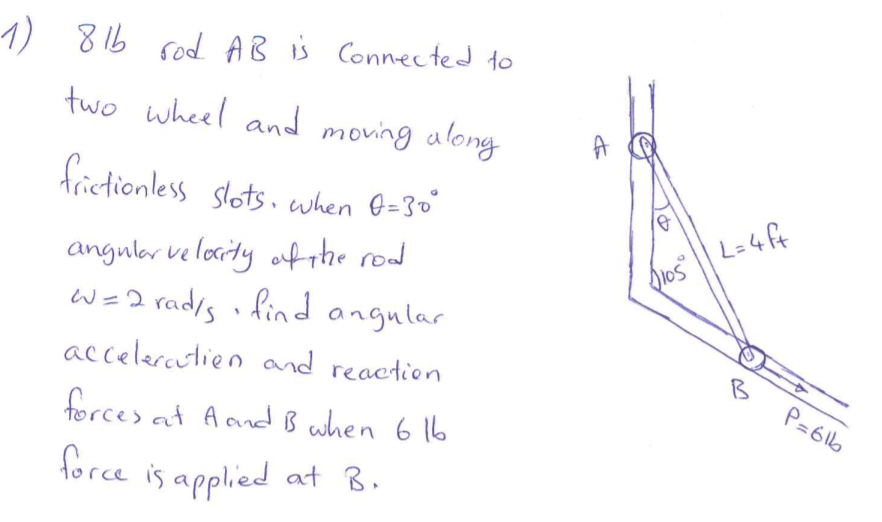 1) 8 lb rod AB is connected to
two wheel and moving along
frictionless slots. when θ=30°
angular velocity of the rod
ω=2 rad/s. find angular
acceleration and reaction
forces at A and B when 6 lb
force is applied at B.
A
θ
L=4ft
105°
B
P=6lb